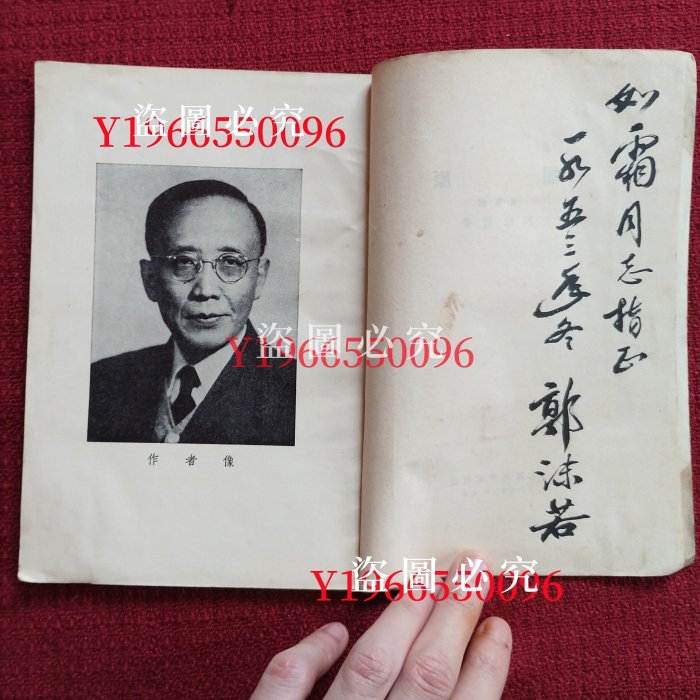 盜圖必究
Y1966550096
如霜同志指正
一九五三年冬
郭沫若
盜圖必究
Y1966550096
作者像
盜圖必究
Y1966550096